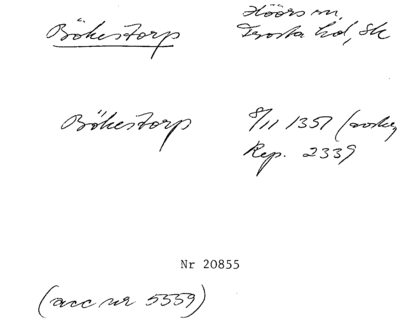 Bökestorp Höörs sn,
Frosta hd, Sk
Bökestorp 8/11 1351 (avskr,
Rep. 2339
Nr 20855
(acc nr 5559)